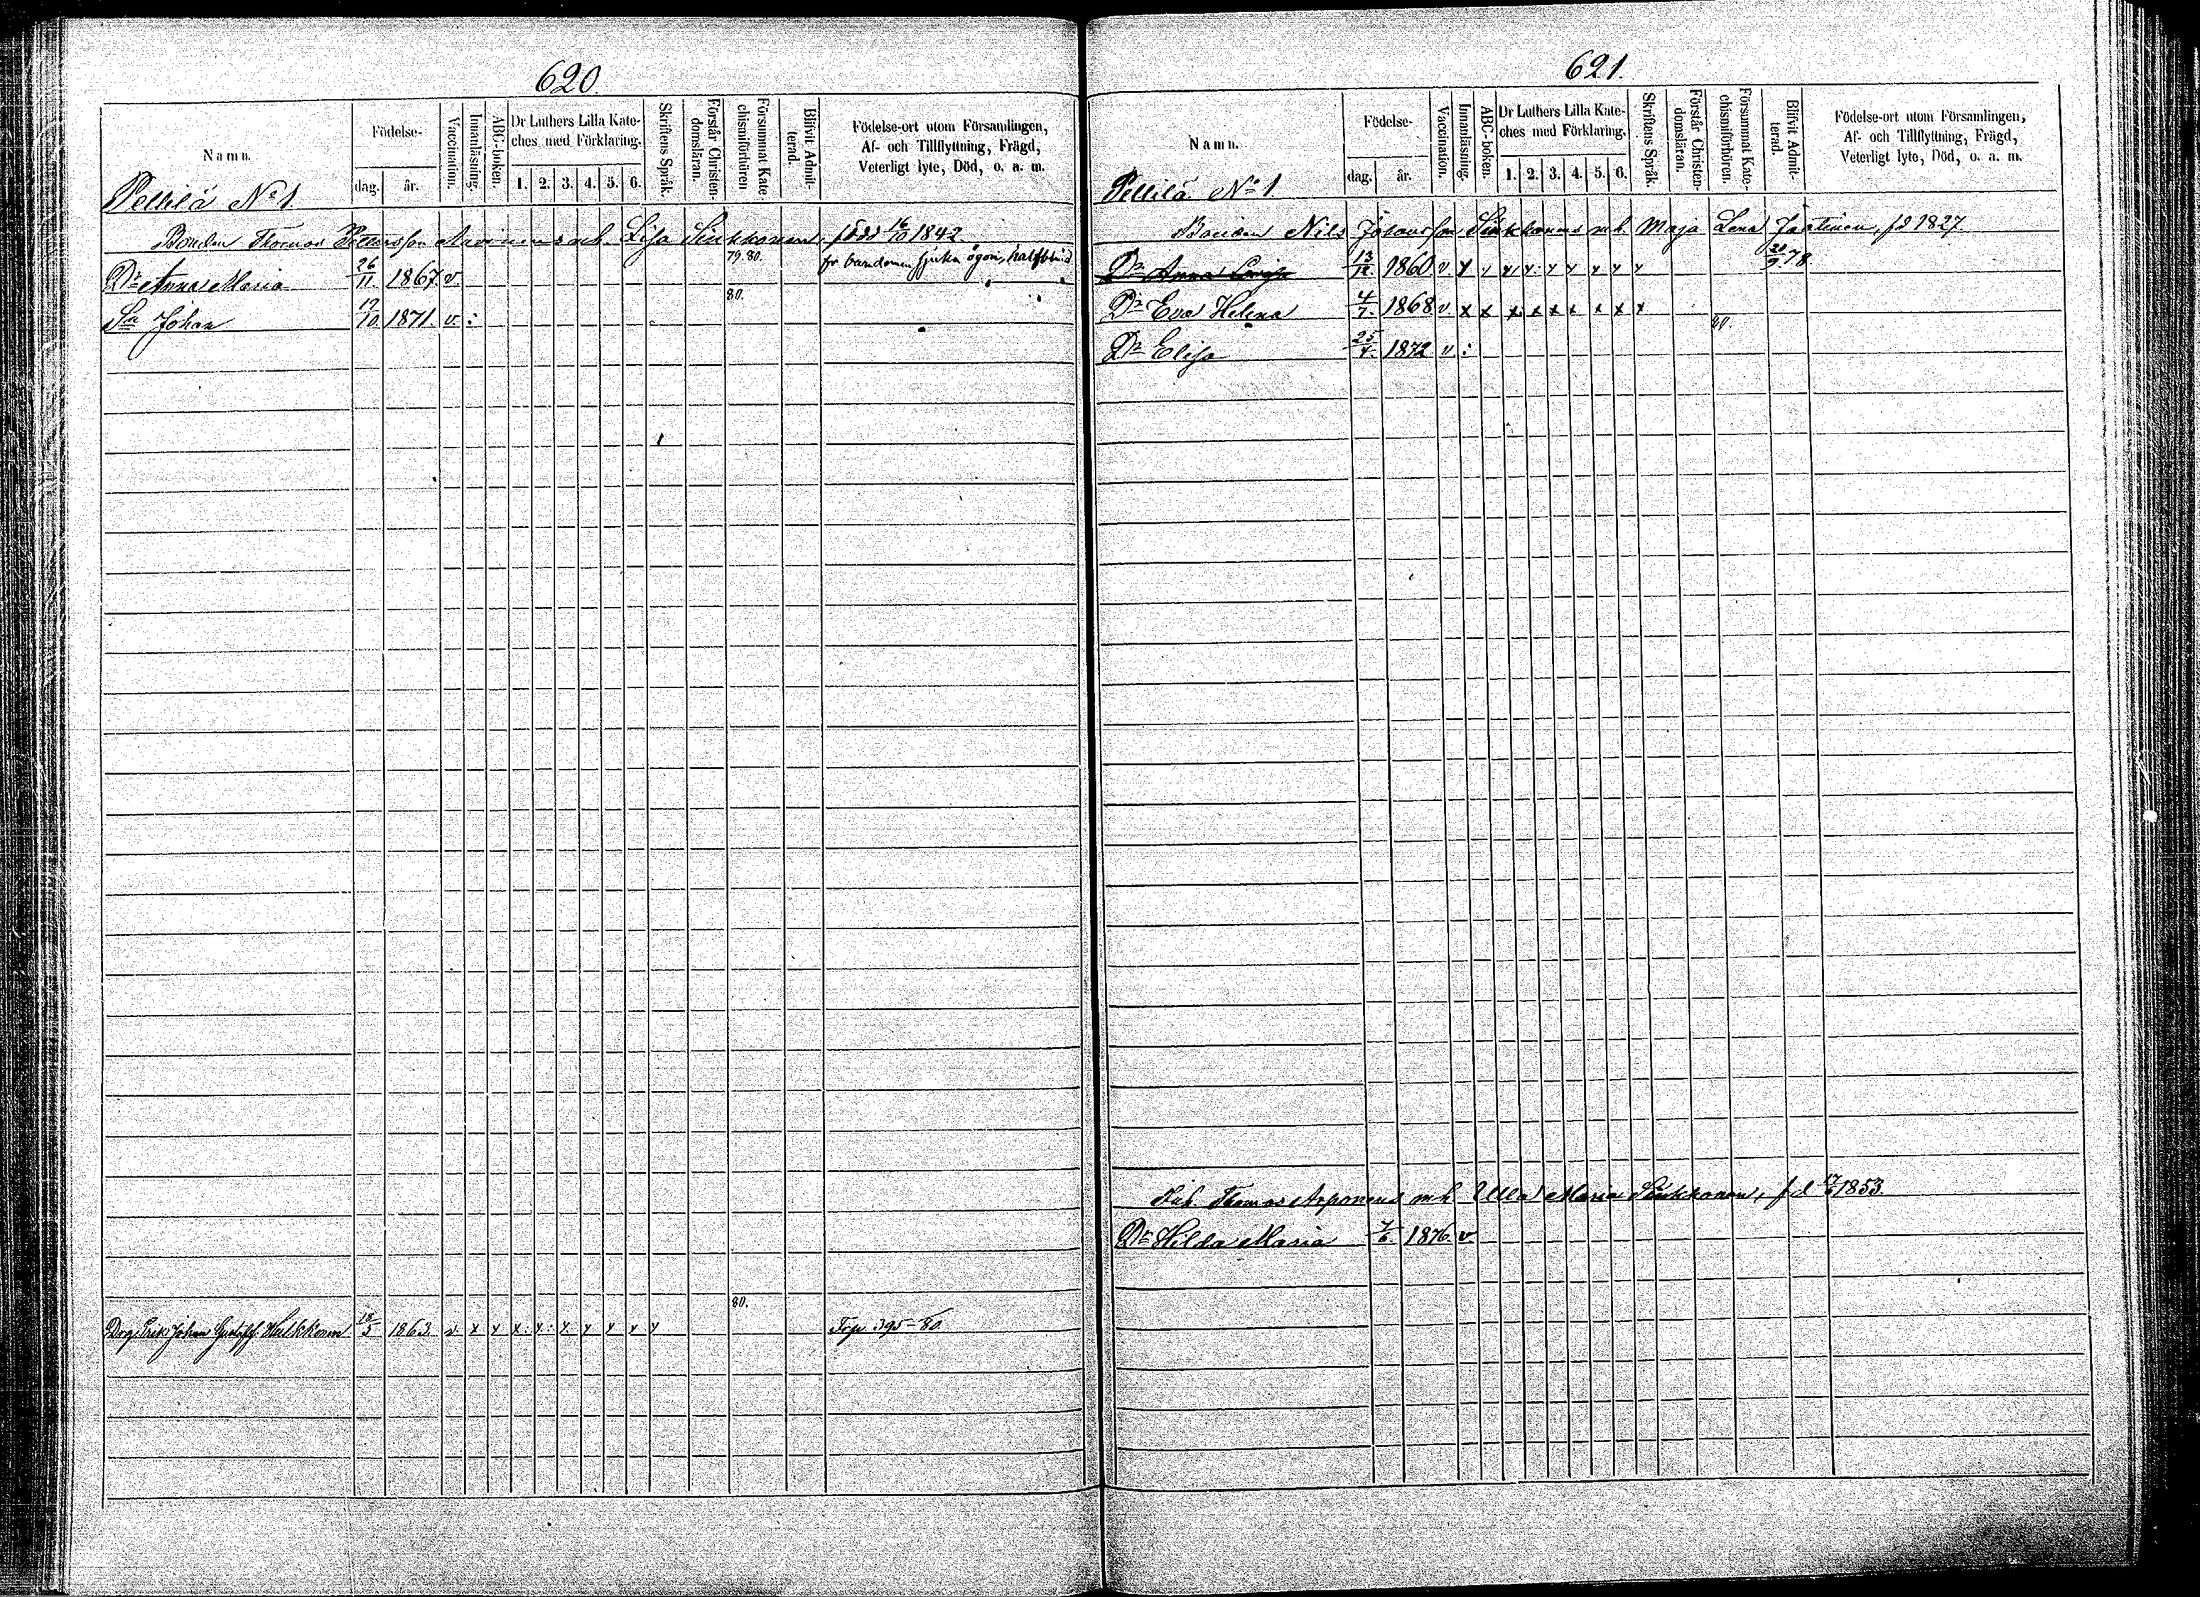 620
Namn.
Födelse-
dag.
år.
Vaccination.
Innanläsning.
ABC-boken.
Dr Luthers Lilla Kate-
ches med Förklaring.
1. 2. 3. 4. 5. 6.
Skriftens Språk.
Förstår Christen-
domsläran.
Försummat Kate-
chismiförhören
Blifvit Admit-
terad.
Födelse-ort utom Församlingen,
Af- och Tillflyttning, Frägd,
Veterligt lyte, Död, o. a. m.
Pellilä No 1
Bonden Thomas Pettersson m.h. Lisa Sinkkonen, född 16/10 1842
Dr Anna Maria 26/11 1867 v 79. 80. fr barndomen sjuka ögon, halfblind
Sn Johan 19/10. 1871. v. : 80.
Drg. Erik Johan Gustaff 18/3 1863. v x y x: x: x y y y y 80.
621.
Namn.
Födelse-
dag.
år.
Vaccination.
Innanläsning.
ABC-boken.
Dr Luthers Lilla Kate-
ches med Förklaring.
1. 2. 3. 4. 5. 6.
Skriftens Språk.
Förstår Christen-
domsläran.
Försummat Kate-
chismiförhören.
Blifvit Admit-
terad.
Födelse-ort utom Församlingen,
Af- och Tillflyttning, Frägd,
Veterligt lyte, Död, o. a. m.
Pellilä No 1.
Bonden Nils Johansson Sinkkonens m.h. Maja Lena, fd 1827.
Dr Anna Lovisa 13/12 1860 v y y y y: y y y y y 78
Dr Eva Helena 4/7. 1868 v. x x x x x x x x x
Dr Elisa 25/4. 1872 v : 80
Inh. Thomas Arponens m h Ulla Maria Sinkkonen, f d 1853.
Dr Hilda Maria 7/6 1876 v